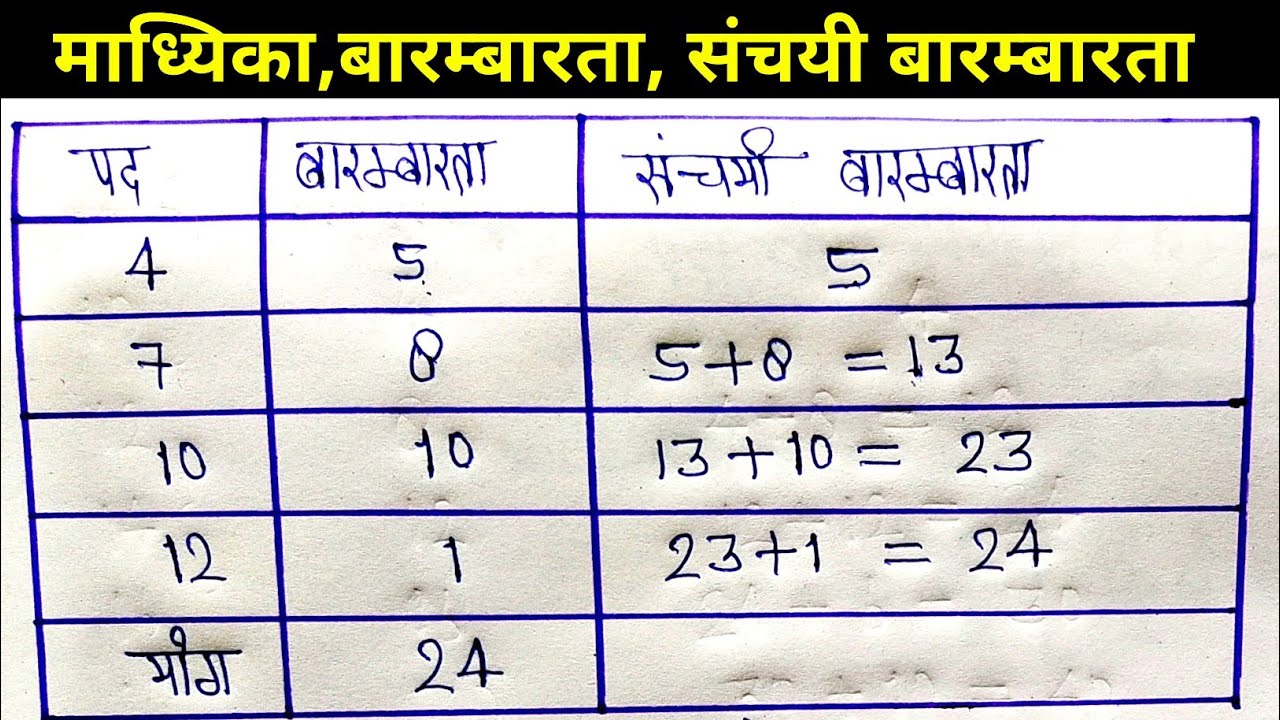 माध्यिका,बारम्बारता, संचयी बारम्बारता
पद बारम्बारता संचयी बारम्बारता
4 5 5
7 8 5+8 =13
10 10 13+10= 23
12 1 23+1 = 24
योग 24